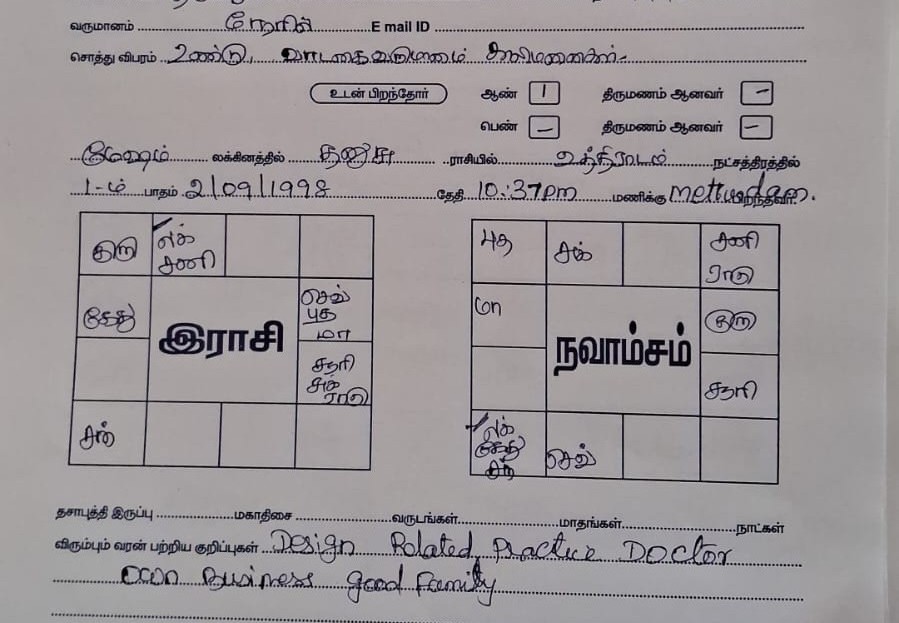 வருமானம் நேரில் E mail ID
சொத்து விபரம் உண்டு, வாடகை வருமானம் காலிமனைகள்.
உடன் பிறந்தோர் ஆண் 1 திருமணம் ஆனவர் –
பெண் – திருமணம் ஆனவர் –
மேஷம் லக்கினத்தில் தனுசு ராசியில் உத்திராடம் நட்சத்திரத்தில்
1-ம் பாதம் 2/09/1998 தேதி 10:37pm மணிக்கு mettupalam பிறந்தவர்.
குரு லக் சனி
கேது செவ் புத மா
இராசி
சூரி சுக் ராகு
சந்
புத சுக் சனி ராகு
மா குரு
நவாம்சம்
சூரி
லக் கேது சந் செவ்
தசாபுத்தி இருப்பு மகாதிசை வருடங்கள் மாதங்கள் நாட்கள்
விரும்பும் வரன் பற்றிய குறிப்புகள் Design Related, Practice Doctor
Own Business good Family